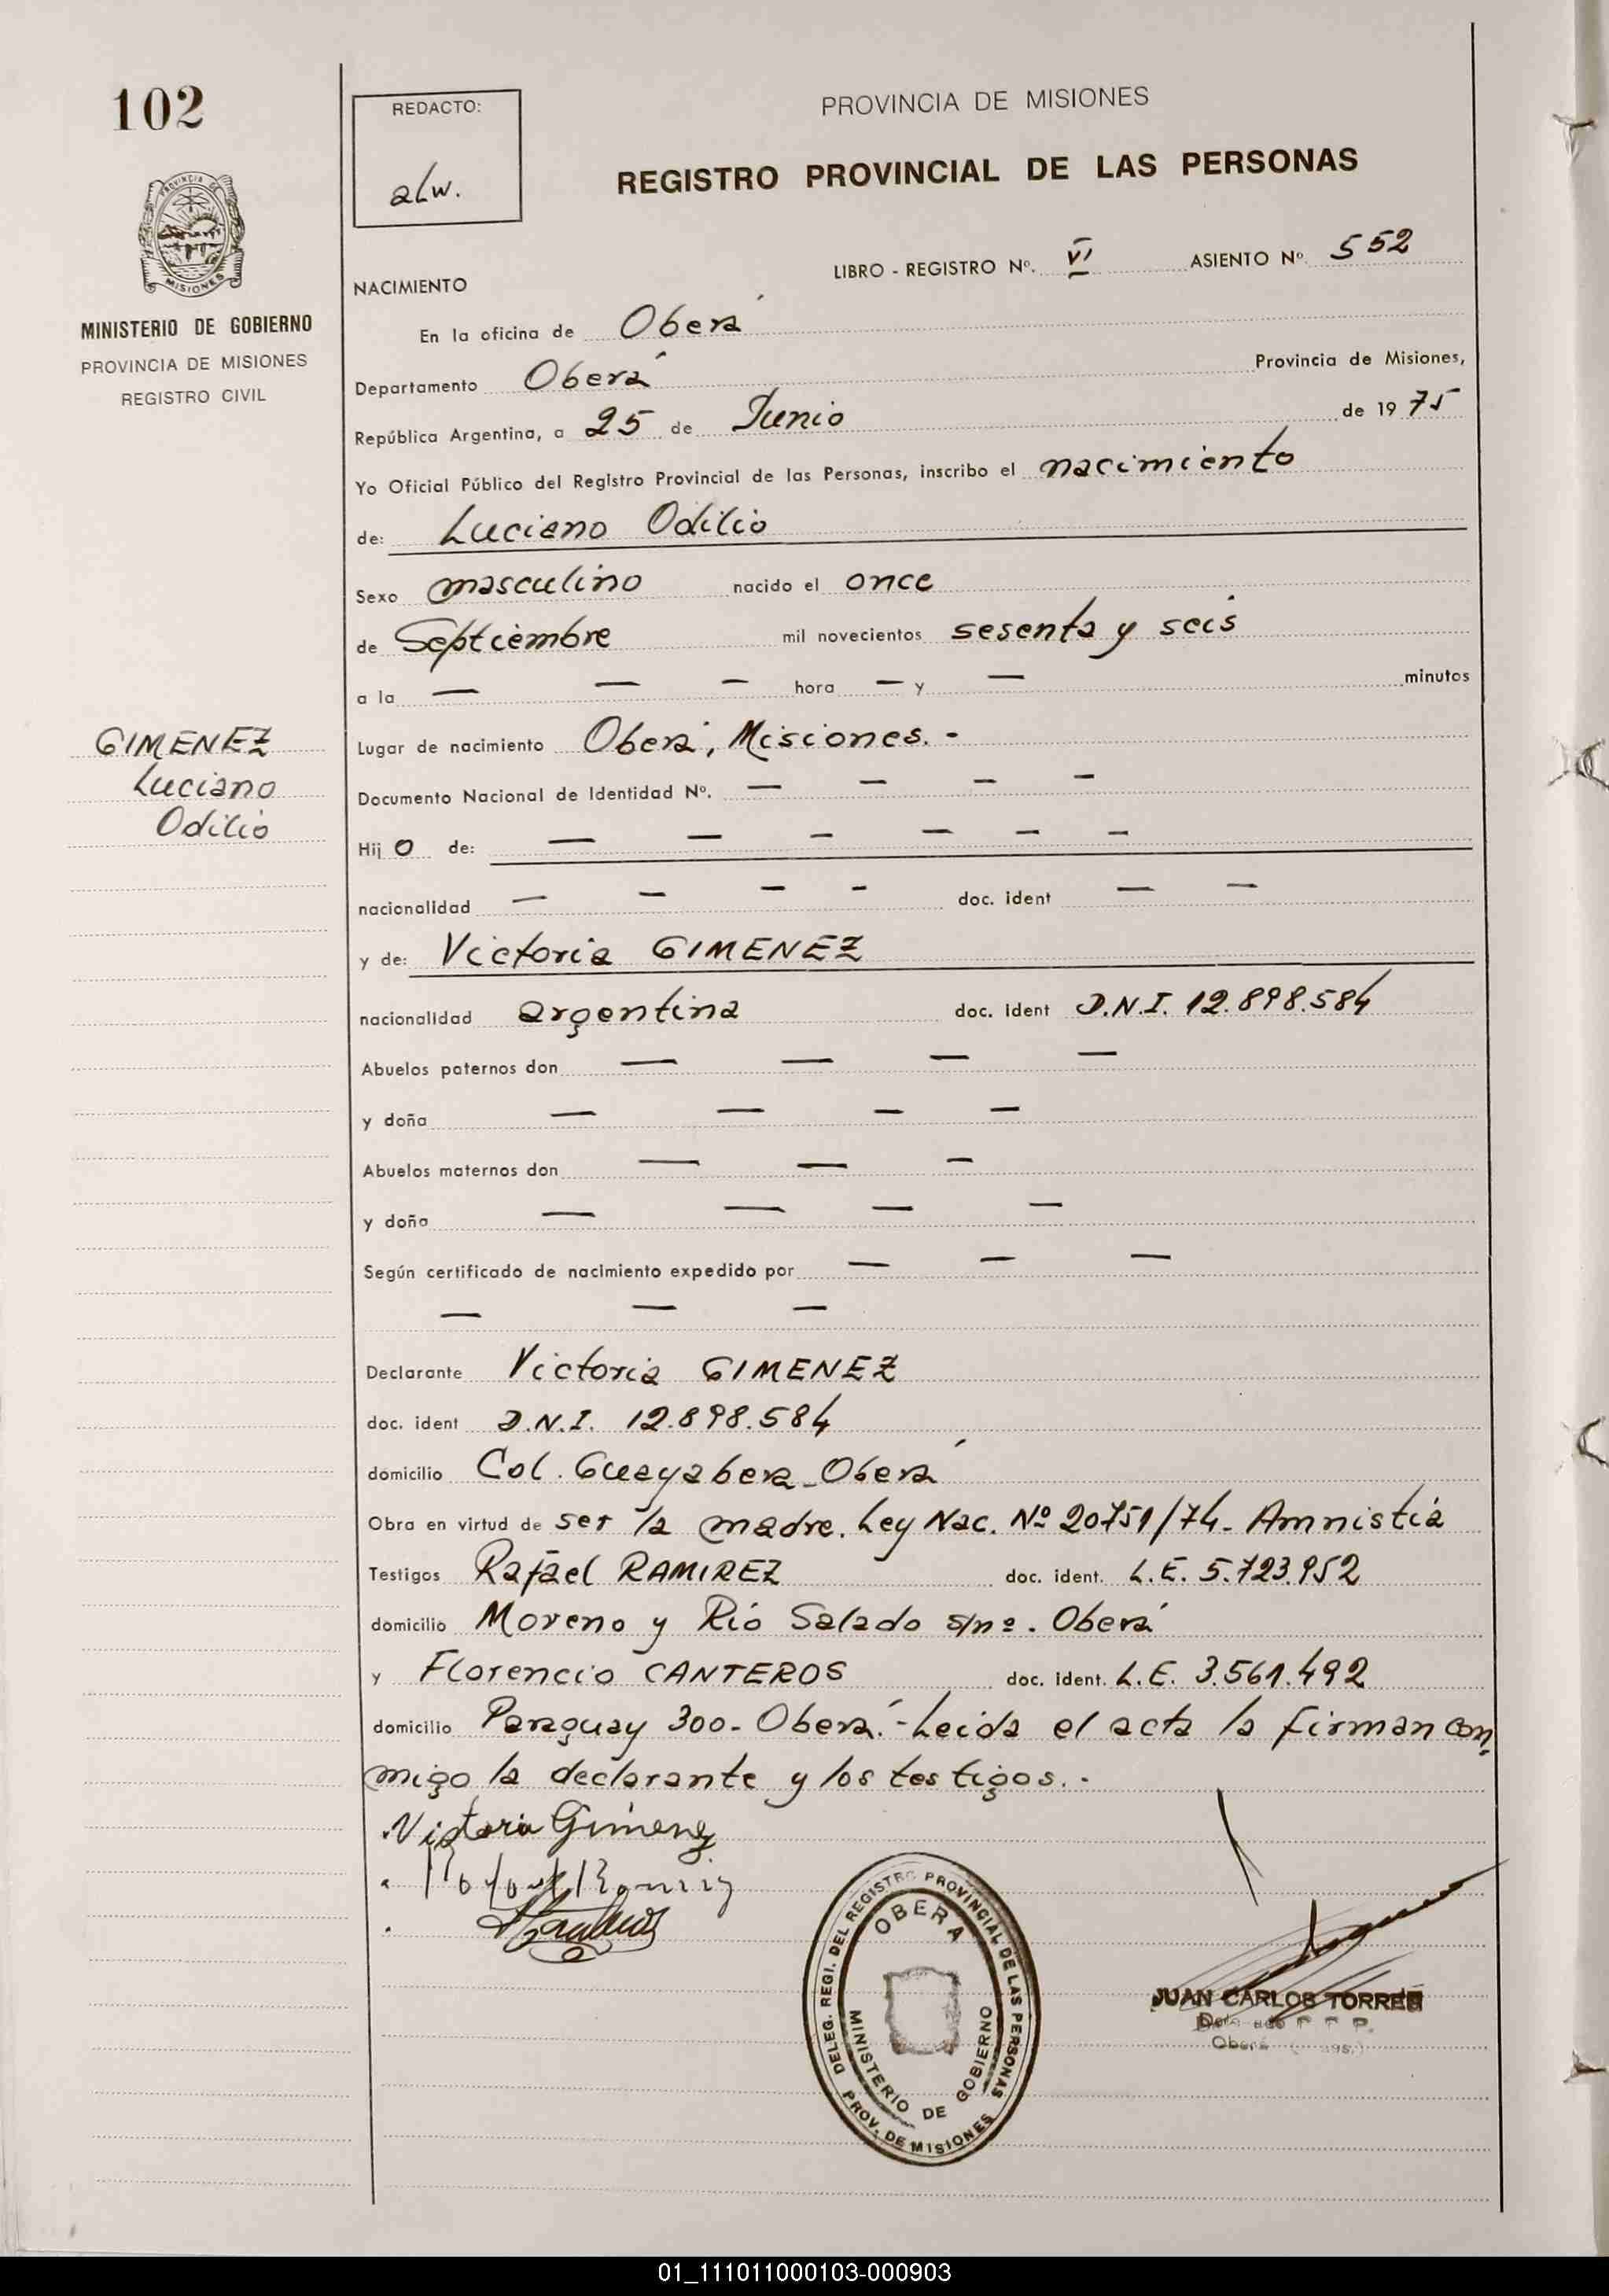 102
REDACTO:
alw.
PROVINCIA DE MISIONES
REGISTRO PROVINCIAL DE LAS PERSONAS
PROVINCIA DE
MISIONES
MINISTERIO DE GOBIERNO
PROVINCIA DE MISIONES
REGISTRO CIVIL
LIBRO - REGISTRO Nº. VI ASIENTO Nº. 552
NACIMIENTO
En la oficina de Oberá
Departamento Oberá Provincia de Misiones,
República Argentina, a 25 de Junio de 1975
Yo Oficial Público del Registro Provincial de las Personas, inscribo el nacimiento
de: Luciano Odilio
Sexo masculino nacido el once
de Septiembre mil novecientos sesenta y seis
a la — — — hora — y — minutos
GIMENEZ
Luciano
Odilio
Lugar de nacimiento Oberá, Misiones. -
Documento Nacional de Identidad Nº. — — — —
Hij o de: — — — — — —
nacionalidad — — — — doc. ident — —
y de: Victoria GIMENEZ
nacionalidad argentina doc. ident D.N.I. 12.898.584
Abuelos paternos don — — — —
y doña — — — —
Abuelos maternos don — — —
y doña — — — —
Según certificado de nacimiento expedido por — — —
— — —
Declarante Victoria GIMENEZ
doc. ident D.N.I. 12.898.584
domicilio Col. Guayabera - Oberá
Obra en virtud de ser la madre. Ley Nac. Nº 20751/74 - Amnistia
Testigos Rafael RAMIREZ doc. ident. L.E. 5.723.952
domicilio Moreno y Rio Salado s/nº. Oberá
y Florencio CANTEROS doc. ident. L.E. 3.561.492
domicilio Paraguay 300 - Oberá. - Leida el acta la firman con-
migo la declarante y los testigos. -
Victoria Gimenez
DELEG. REGI. DEL REGISTRO PROVINCIAL DE LAS PERSONAS
OBERA
MINISTERIO DE GOBIERNO
PROV. DE MISIONES
JUAN CARLOS TORRES
Oberá
01_111011000103-000903